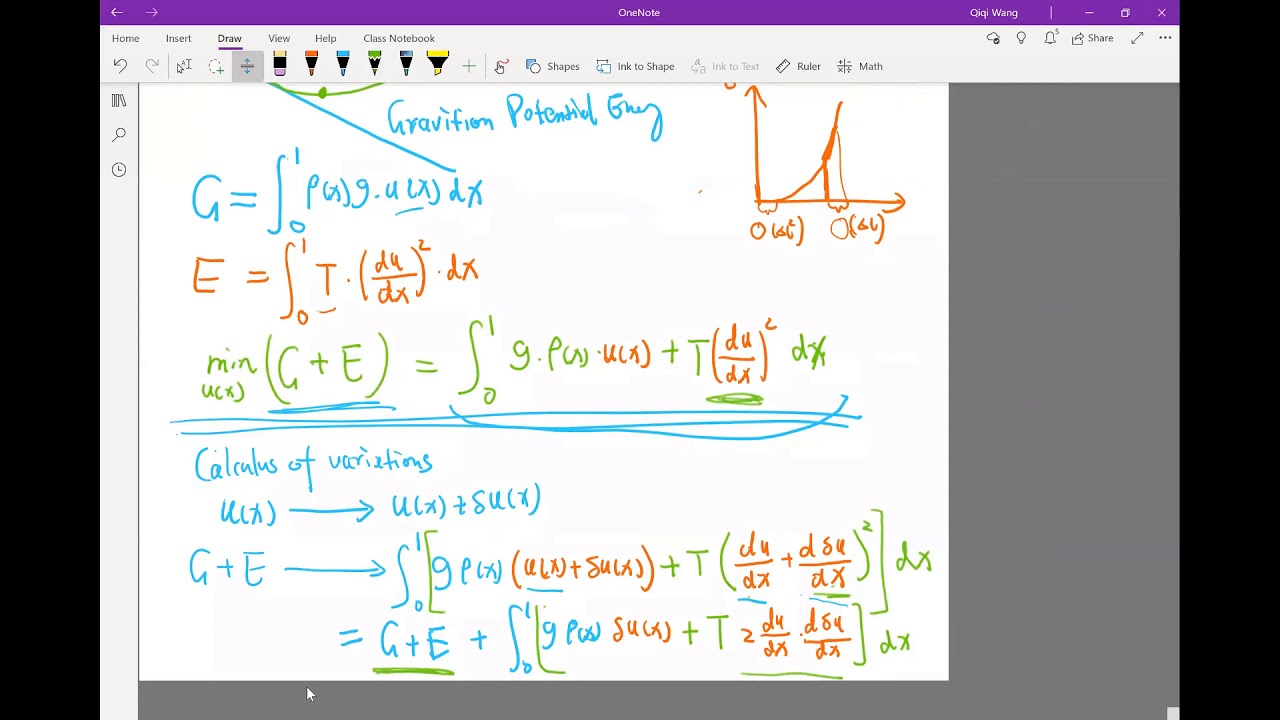 OneNote
Qiqi Wang
Home Insert Draw View Help Class Notebook
Share
Shapes Ink to Shape Ink to Text Ruler Math
Gravition Potential
G = ∫₀¹ ρ(x) g · u(x) dx
O(Δt²) O(Δt)
E = ∫₀¹ T · (du/dx)² · dx
min u(x) (G + E) = ∫₀¹ g · ρ(x) · u(x) + T (du/dx)² dx
Calculus of variations
u(x) → u(x) + δu(x)
G + E → ∫₀¹ [g ρ(x) (u(x) + δu(x)) + T (du/dx + dδu/dx)²] dx
= G + E + ∫₀¹ [g ρ(x) δu(x) + T 2 du/dx · dδu/dx] dx